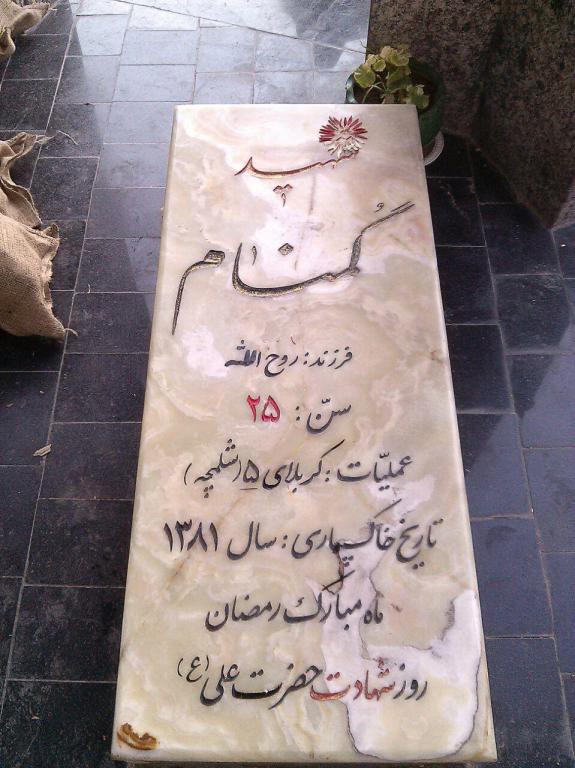 شهید
گمنام
فرزند: روح الله
سنّ: ۲۵
عملیّات: کربلای ۵ (شلمچه)
تاریخ خاکسپاری: سال ۱۳۸۱
ماه مبارک رمضان
روز شهادت حضرت علی (ع)